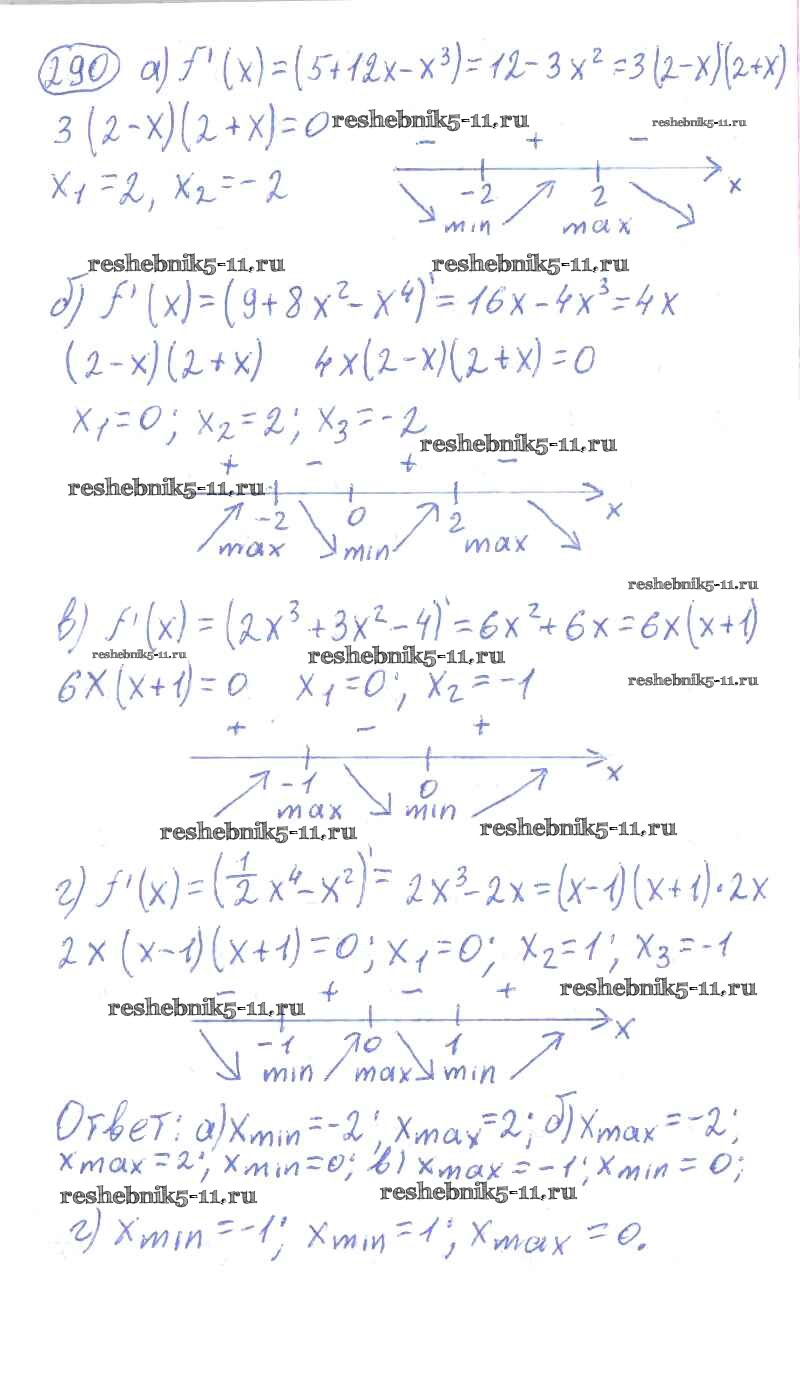 290 а) f'(x) = (5+12x-x³) = 12-3x² = 3(2-x)(2+x)
3(2-x)(2+x)=0 reshebnik5-11.ru reshebnik5-11.ru
- + -
x₁ = 2, x₂ = -2
-2 2 x
min max
reshebnik5-11.ru reshebnik5-11.ru
б) f'(x) = (9+8x²-x⁴)' = 16x-4x³ = 4x
(2-x)(2+x) 4x(2-x)(2+x)=0
x₁=0; x₂=2; x₃=-2
reshebnik5-11.ru
+ - + -
reshebnik5-11.ru
-2 0 2 x
max min max
reshebnik5-11.ru
в) f'(x) = (2x³+3x²-4)' = 6x²+6x = 6x(x+1)
reshebnik5-11.ru reshebnik5-11.ru
6x(x+1)=0 x₁=0; x₂=-1 reshebnik5-11.ru
+ - +
-1 0 x
max min
reshebnik5-11.ru reshebnik5-11.ru
г) f'(x) = (1/2 x⁴-x²)' = 2x³-2x = (x-1)(x+1)·2x
2x(x-1)(x+1)=0; x₁=0; x₂=1; x₃=-1
- + - + reshebnik5-11.ru
reshebnik5-11.ru
-1 0 1 x
min max min
Ответ: а) xmin=-2; xmax=2; б) xmax=-2;
xmax=2; xmin=0; в) xmax=-1; xmin=0;
reshebnik5-11.ru reshebnik5-11.ru
г) xmin=-1; xmin=1; xmax=0.